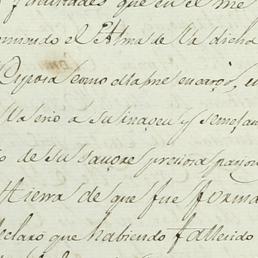 facultades que en el me
omiendo el Alma de la dicha
Esposa como ella me encargó,
la crio a su imagen y semejan
de su sangre preciosa pasion
tierra de que fue forma
declaro que habiendo fallecido